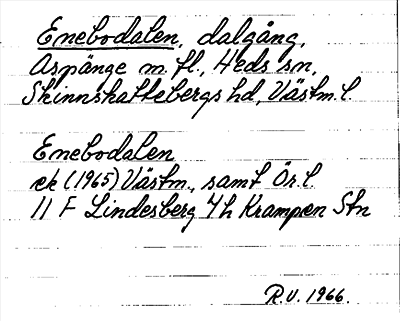 Enebodalen, dalgång,
Aspänge m. fl., Heds sn,
Skinnskattebergs hd, Västm. l.
Enebodalen
ek (1965) Västm., samt Ör. l.
11 F Lindesberg 7h Krampen Stn
R.V. 1966.